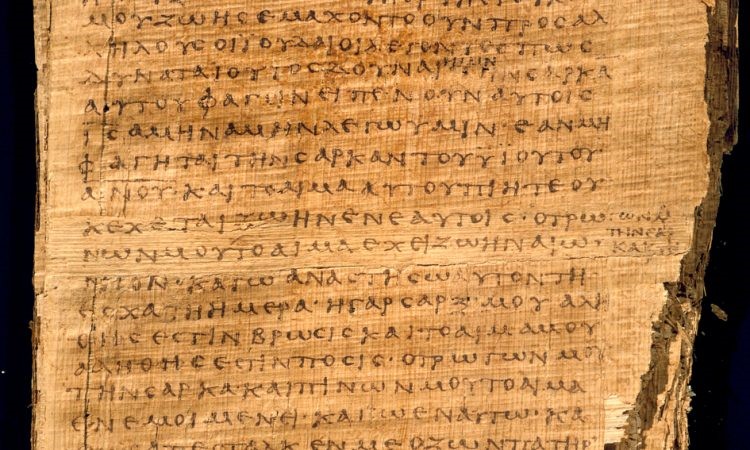 ΜΟΥΖΩΗϹΕΜΑΧΟΝΤΟΟΥΝΠΡΟϹΑΛ
ΛΗΛΟΥϹΟΙΙΟΥΔΑΙΟΙΛΕΓΟΝΤΕϹΠΩϹ
ΔΥΝΑΤΑΙΟΥΤΟϹΔΟΥΝΑΙΗΜΙΝΤΗΝϹΑΡΚΑ
ΑΥΤΟΥΦΑΓΕΙΝΕΙΠΕΝΟΥΝΑΥΤΟΙϹ
ΙϹΑΜΗΝΑΜΗΝΛΕΓΩΥΜΙΝ·ΕΑΝΜΗ
ΦΑΓΗΤΑΙΤΗΝϹΑΡΚΑΝΤΟΥΥΪΟΥΤΟΥ
ΑΝΟΥ·ΚΑΙΤΟΑΙΜΑΑΥΤΟΥΠΙΗΤΕΟΥ
ΚΕΧΕΤΑΙΖΩΗΝΕΝΕΑΥΤΟΙϹ·ΟΤΡΩ
ΝΩΝΜΟΥΤΟΑΙΜΑΕΧΕΙΖΩΗΝΑΙΩ
ΝΙΟΝ·ΚΑΓΩΑΝΑϹΤΗϹΩΑΥΤΟΝΤΗ
ΕϹΧΑΤΗΗΜΕΡΑ·ΗΓΑΡϹΑΡΞ·ΜΟΥΑΛΗ
ΘΗϹΕϹΤΙΝΒΡΩϹΙϹΚΑΙ·ΤΟΑΙΜΑΜΟΥ
ΑΛΗΘΗϹΕϹΤΙΝΠΟϹΙϹ·ΟΤΡΩΓΩΝΜΟΥ
ΤΗΝϹΑΡΚΑΚΑΙΠΙΝΩΝΜΟΥΤΟΑΙΜΑ
ΕΝΕΜΟΙΜΕΝΕΙ·ΚΑΓΩΕΝΑΥΤΩ·ΚΑ
ΘΩϹΑΠΕϹΤΑΛΚΕΝΜΕΟΖΩΝΠΑΤΗΡ·